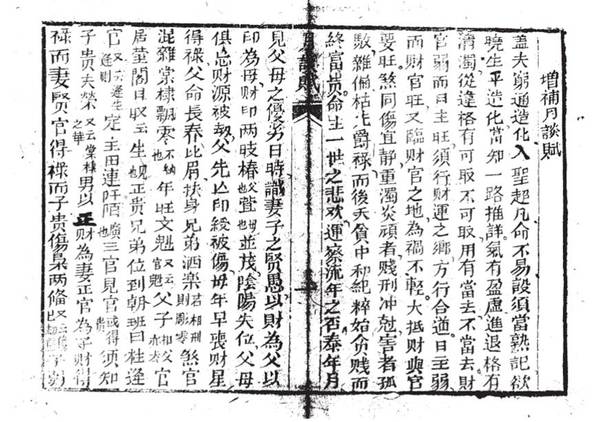 增補月談賦
蓋夫窮通造化入聖超凡命不易設須當熟記欲
曉生平造化當知一路推詳氣有盈虛進退格有
清濁從違格有可取不可取用有當去不當去財
官弱而日主旺須行財運之鄉方行合適日主弱
而財官旺又臨財官之地為禍不輕大抵財與官
要旺煞同傷宜靜重濁炎頑者賤刑冲尅害者孤
駁雜偏枯先爵祿而後夭貧中和純粹始貧賤而
終富貴命主一世之悲歡運察流年之否泰年月
月談賦
見父母之優劣日時識妻子之賢愚以財為父以
印為母財印两歧椿萱並茂陰陽失位父母
俱忌财源被劫父先亾印綬被傷母年早喪財星
得祿父命長春比肩扶身兄弟洒樂煞官
混雜棠棣飄零年旺文魁父子
居董閣日取云生正貴兄弟位到朝班曰柱逢
官定主田連阡陌三官見官須知
子貴夫榮又云棠棣之華男以正財為妻正官為子財得
祿而妻賢官得祿而子貴傷梟两條